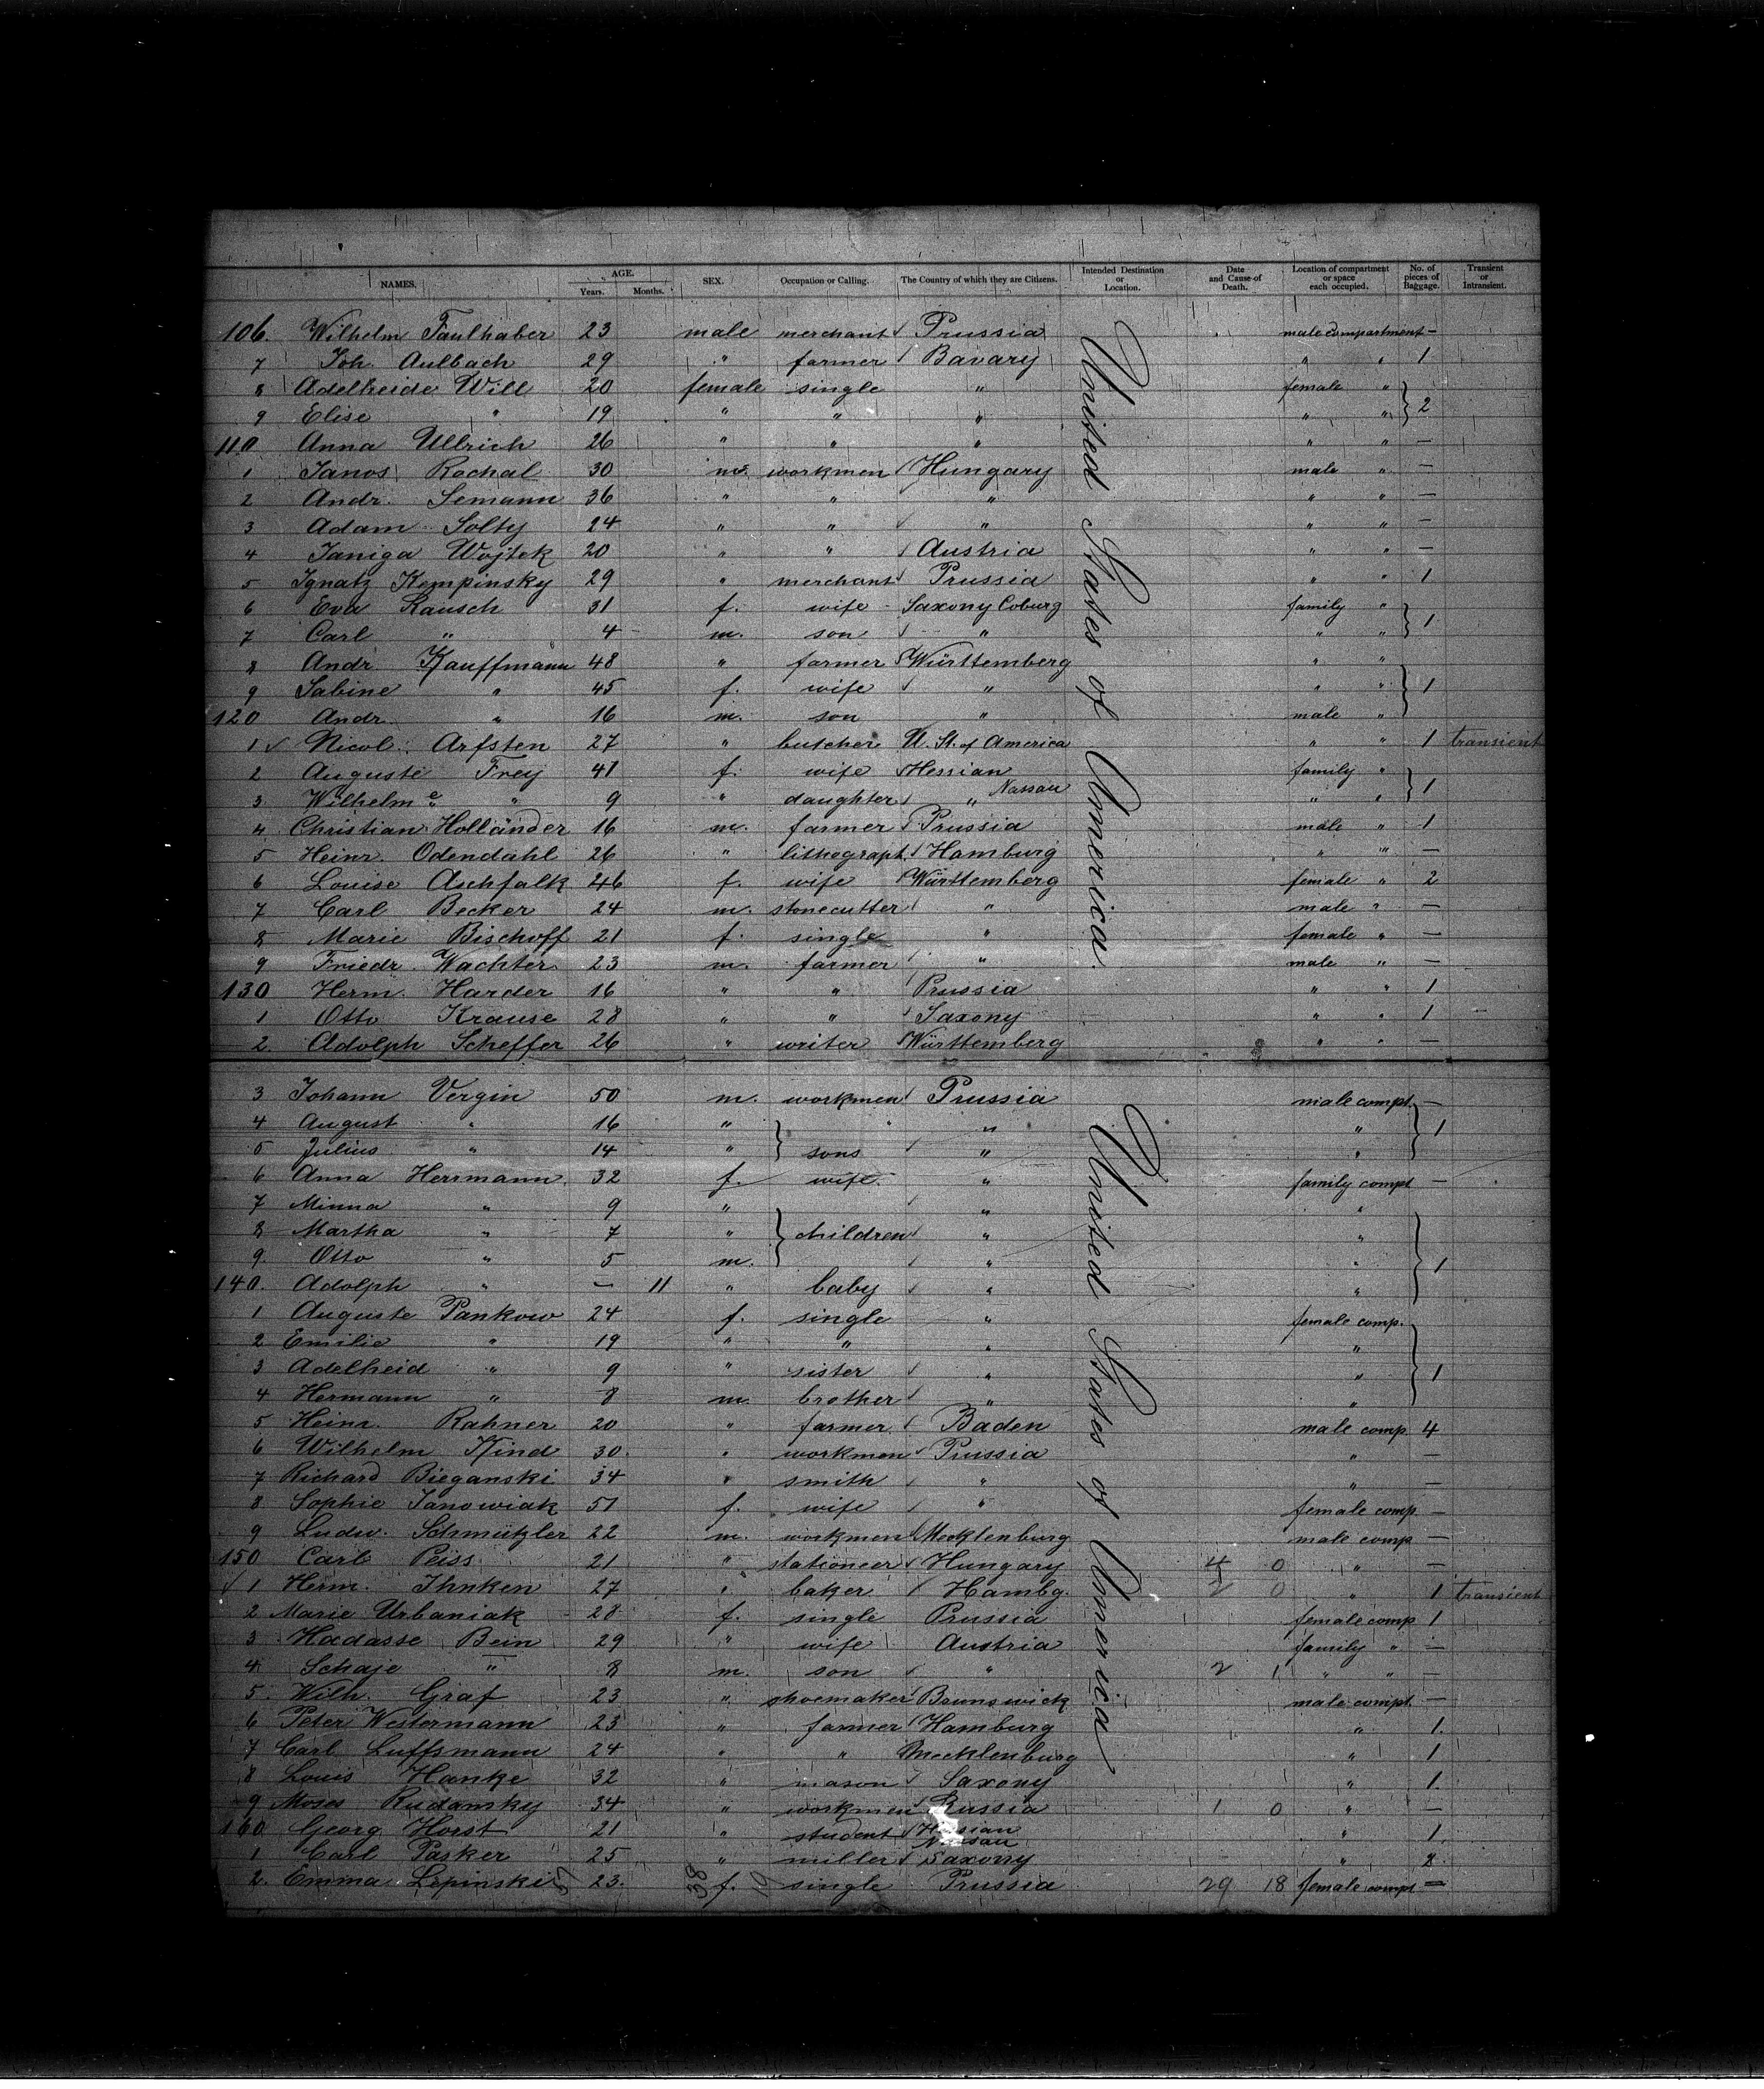 NAMES. AGE. Years. Months. SEX. Occupation or Calling. The Country of which they are Citizens. Intended Destination or Location. Date and Cause of Death. Location of compartment or space each occupied. No. of pieces of Baggage. Transient or Intransient.
106. Wilhelm Faulhaber 23 male merchant Prussia male compartment —
7 Joh. Aulbach 29 " farmer Bavary " " 1
8 Adelheide Will 20 female single " female "
9 Elise " 19 " " " " " } 2
110 Anna Ullrich 26 " " " " " —
1 Janos Rochal 30 m. workmen Hungary male " —
2 Andr. Semann 36 " " " " " —
3 Adam Solty 24 " " " " " —
4 Janiga Wojtek 20 " " Austria " " —
5 Ignatz Kempinsky 29 " merchant Prussia " " 1
6 Eva Rausch 31 f. wife Saxony Coburg family "
7 Carl " 4 m. son " " " } 1
8 Andr. Kauffmann 48 " farmer Württemberg " "
9 Sabine " 45 f. wife " " " } 1
120 Andr. " 16 m. son " male "
1 ✓ Nicol. Arfsten 27 " butcher U. St. of America " " 1 transient
2 Auguste Frey 41 f. wife Hessian family "
3 Wilhelme " 9 " daughter " Nassau " " } 1
4 Christian Holländer 16 m. farmer Prussia male " 1
5 Heinr. Odendahl 26 " lithograph. Hamburg " " —
6 Louise Aschfalk 46 f. wife Württemberg female " 2
7 Carl Becker 24 m. stonecutter " male " —
8 Marie Bischoff 21 f. single " female " —
9 Friedr. Wachter 23 m. farmer " male " —
130 Herm. Harder 16 " " Prussia " " 1
1 Otto Krause 28 " " Saxony " " 1
2 Adolph Scheffer 26 " writer Württemberg " " —
United States of America.
3 Johann Vergin 50 m. workmen Prussia male compt. —
4 August " 16 " " " } 1
5 Julius " 14 " } sons " "
6 Anna Herrmann 32 f. wife " family compt —
7 Minna " 9 " " "
8 Martha " 7 " } children " "
9 Otto " 5 m. " " } 1
140. Adolph " — 11 " baby " "
1 Auguste Pankow 24 f. single " female comp.
2 Emilie " 19 " " " "
3 Adelheid " 9 " sister " " } 1
4 Hermann " 8 m. brother " "
5 Heinr. Rahner 20 " farmer Baden male comp. 4
6 Wilhelm Kind 30. " workmen Prussia " —
7 Richard Bieganski 34 " smith " " —
8 Sophie Janowiak 51 f. wife " female comp. —
9 Ludw. Schmützler 22 m. workmen Mecklenburg male comp —
150 Carl Peiss 21 " stationeer Hungary 4 0 " —
✓ 1 Herm. Ihnken 27 " baker Hambg. 2 0 " 1 transient
2 Marie Urbaniak 28 f. single Prussia female comp 1
3 Hadasse Bein 29 " wife Austria family " —
4 Schaje " 8 m. son " 2 1 " " —
5. Wilh. Graf 23 " shoemaker Brunswick male compt. —
6 Peter Westermann 23 " farmer Hamburg " 1.
7 Carl Luffsmann 24 " " Mecklenburg " 1
8 Louis Hanke 32 " mason Saxony " 1.
9 Moses Rudansky 34 " workmen Russia 1 0 " —
160 Georg Horst 21 " student Hessian Nassau " 1.
1 Carl Pasker 25 " miller Saxony " 2.
2. Emma Lepinski 23. 38 f. 19 single Prussia 29 18 female compt. —
United States of America